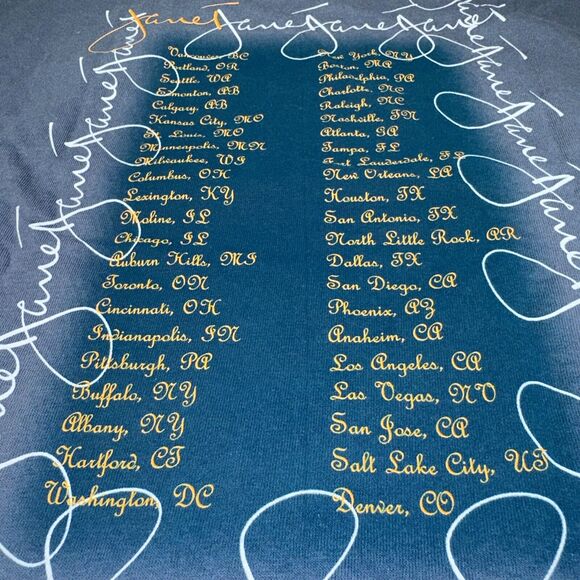 Janet Janet Janet Janet
Vancouver, BC
Portland, OR
Seattle, WA
Edmonton, AB
Calgary, AB
Kansas City, MO
St. Louis, MO
Minneapolis, MN
Milwaukee, WI
Columbus, OH
Lexington, KY
Moline, IL
Chicago, IL
Auburn Hills, MI
Toronto, ON
Cincinnati, OH
Indianapolis, IN
Pittsburgh, PA
Buffalo, NY
Albany, NY
Hartford, CT
Washington, DC
New York, NY
Boston, MA
Philadelphia, PA
Charlotte, NC
Raleigh, NC
Nashville, TN
Atlanta, GA
Tampa, FL
Fort Lauderdale, FL
New Orleans, LA
Houston, TX
San Antonio, TX
North Little Rock, AR
Dallas, TX
San Diego, CA
Phoenix, AZ
Anaheim, CA
Los Angeles, CA
Las Vegas, NV
San Jose, CA
Salt Lake City, UT
Denver, CO